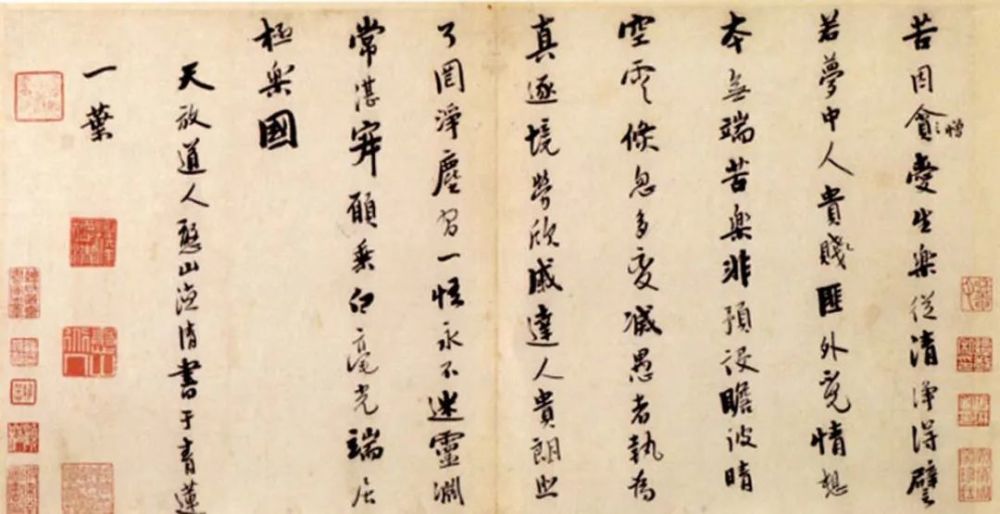 苦因貪憎愛生樂從清淨得譬
若夢中人貴賤匪外覓情想
本無端苦樂非預設瞻彼晴
空雲倏忽多變滅愚者執為
真逐境勞欣戚達人貴朗照
了罔淨塵習一悟永不迷靈淵
常湛寂願乘白毫光端居
極樂國
天放道人憨山德清書于青蓮
一葉